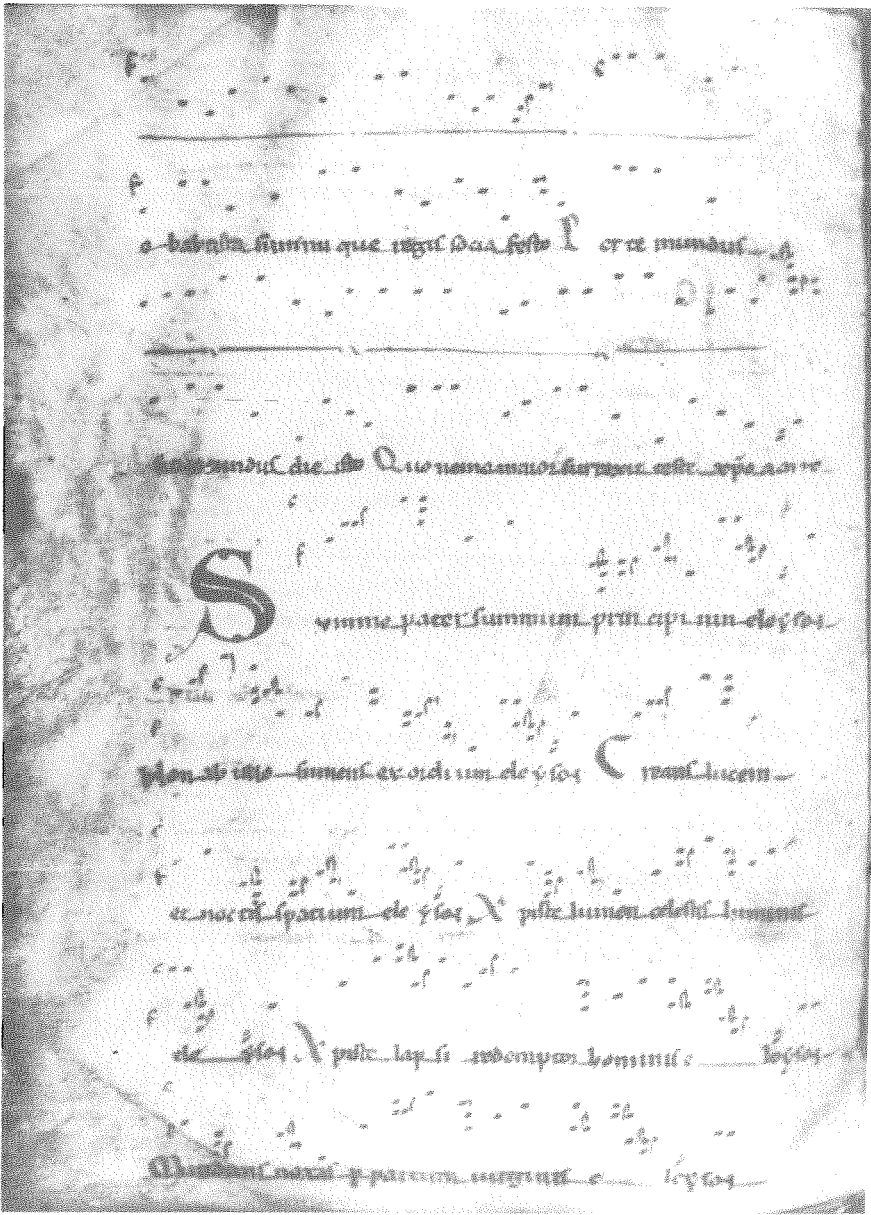 o babtista summi que regis socia festo Per te mundus
mundus die isto Quo nemo maior surrexit teste xpo
Summe pater summum principium eleyson
plon ab initio sumens exordium eleyson Creans lucem
et noctis spacium eleyson Xpiste lumen celestis luminis
eleyson Xpiste lapsi redemptor hominis eleyson
p partum virginis eleyson